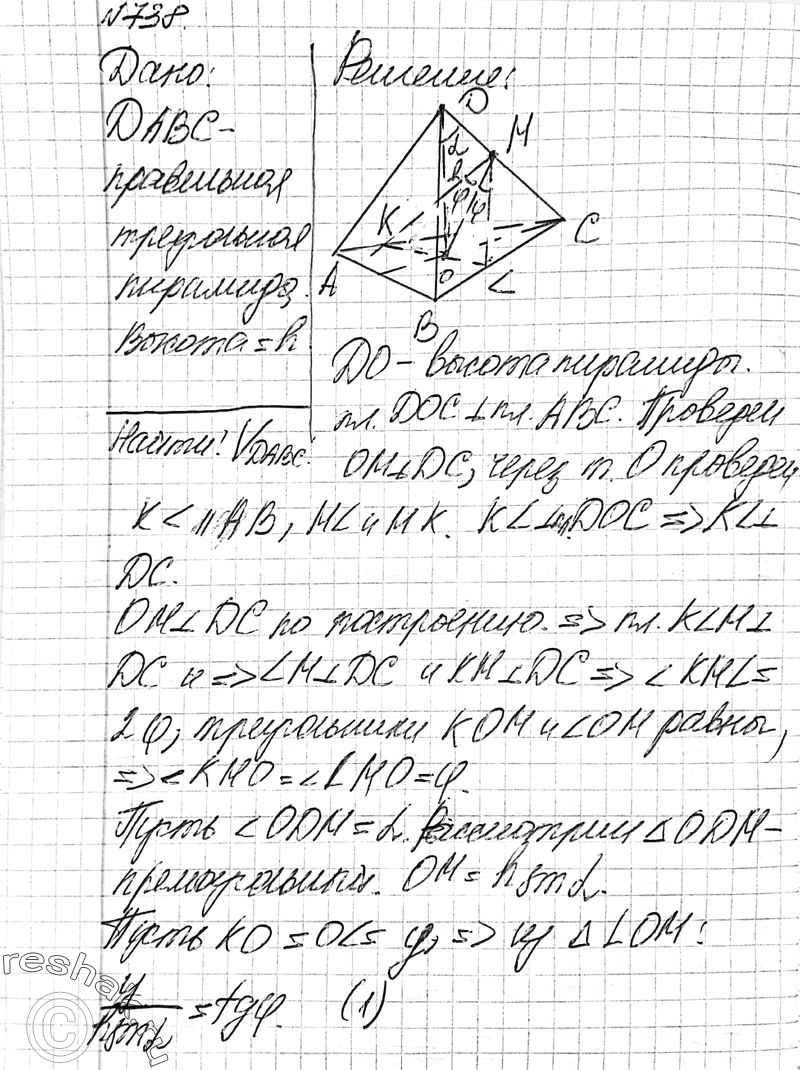 №738.
Дано:
DABC-
правильная
треугольная
пирамида.
Высота = h
Найти: V DABC.
Решение:
D
M
α
2φ
φ
K
C
A
O
L
B
DO – высота пирамиды.
пл. DOC ⊥ пл. ABC. Проведем
OM⊥DC, через т. O проведем
KL || AB, ML и MK. KL⊥пл.DOC => KL⊥
DC.
OM⊥DC по построению. => пл. KLM⊥
DC и => LM⊥DC и KM⊥DC => ∠KML=
2φ, треугольники KOM и LOM равны,
=> ∠KMO = ∠LMO = φ.
Пусть ∠ODM = α. Рассмотрим △ODM –
прямоугольный. OM = h sin α.
Пусть KO = OL = y, => из △LOM:
y / h sin α = tg φ. (1)
reshak.ru
©